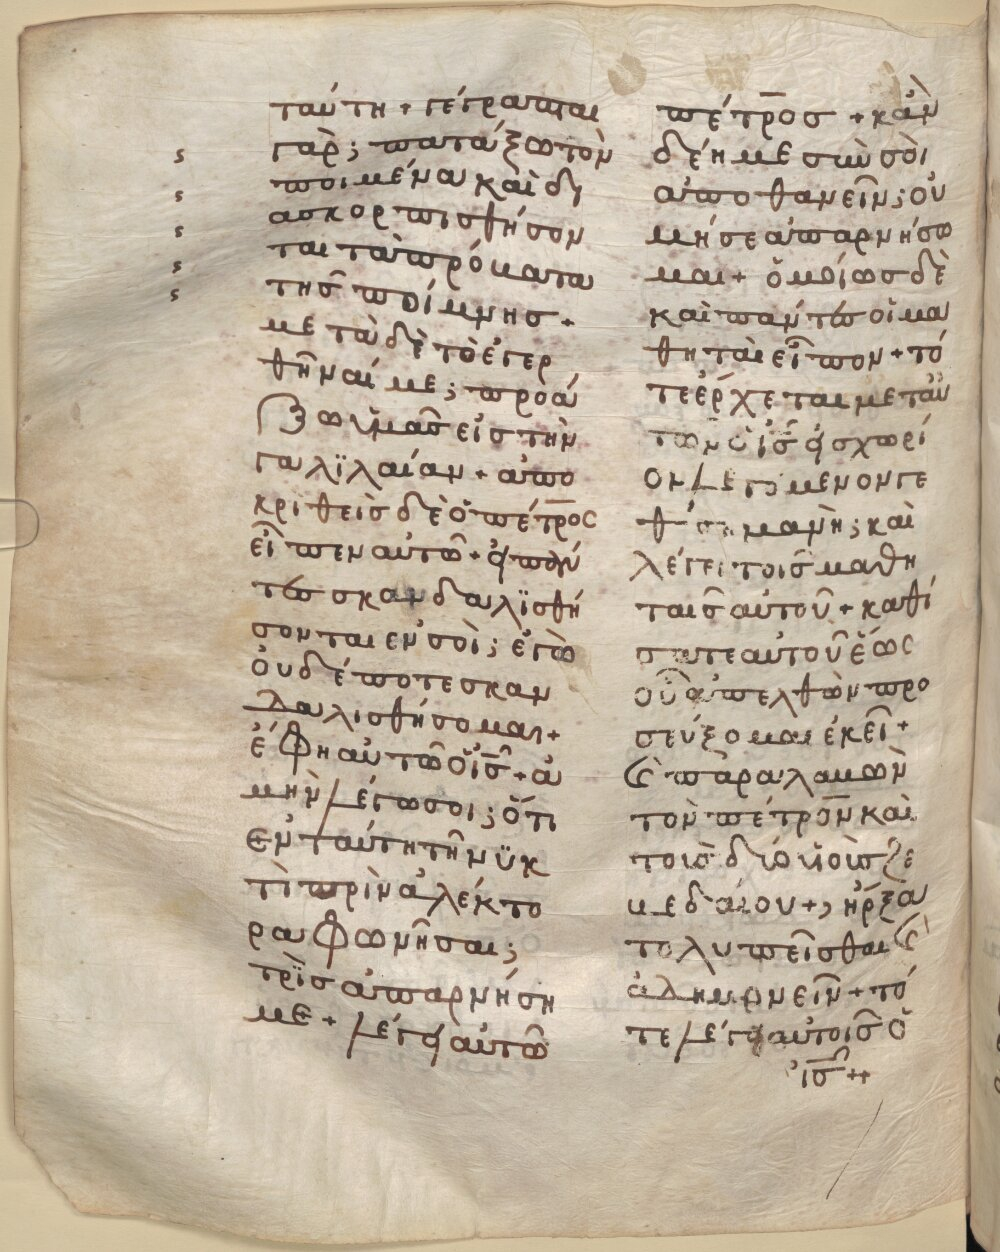 ταύτη + γέγραπται
γὰρ ; πατάξω τὸν
ποιμένα καὶ δι
ασκορπισθήσον
ται τὰ πρόματα
τῆς ποίμνησ +
μετὰ δὲ τὸ ἐγερ
θῆναί με ; προά
ξω ὑμᾶσ εἰσ τὴν
γαλϊλαίαν + ἀπο
κριθεὶσ δὲ ὁ πέτρος
εἶπεν αὐτῶ + εἰ πάν
τεσ σκανδαλϊσθή
σονται ἐν σοὶ ; ἐγὼ
ὀυδέποτε σκαν
δαλισθήσομαι +
ἔφη αὐτῶ ὁ ἰσ + ἀ
μὴν λέγω σοι ; ὅτι
ἐν ταύτη τῆ νϋκ
τὶ πρὶν ἀλέκτο
ρα φωνῆσαι ;
τρὶσ ἀπαρνήση
με + λέγει αὐτῶ
πέτροσ + κἂν
δέη με σὺν σὸι
ἀποθανεῖν ; οὐ
μή σε ἀπαρνήσω
μαι + ὁμοίωσ δὲ
καὶ πάντεσ οἱ μα
θηταὶ εἶπον + τό
τε ἔρχεται μετ αὐ
τῶν ὁ ἰσ εἰσ χωρί
ον λεγόμενον γε
θσημανὴ ; καὶ
λέγει τοῖσ μαθη
ταῖσ αὐτοῦ + καθί
σατε αὐτοῦ ἕως
οὗ ἀπελθὼν προ
σεύξομαι ἐκεῖ +
καὶ παραλαβὼν
τὸν πέτρον καὶ
τοὺσ δύο ὑιοὺσ ζε
βεδαίου + ; ἤρξα
το λυπεῖσθαι καὶ
ἀδημονεῖν + τό
τε λέγει αὐτοῖσ ὁ
ἰσ ++